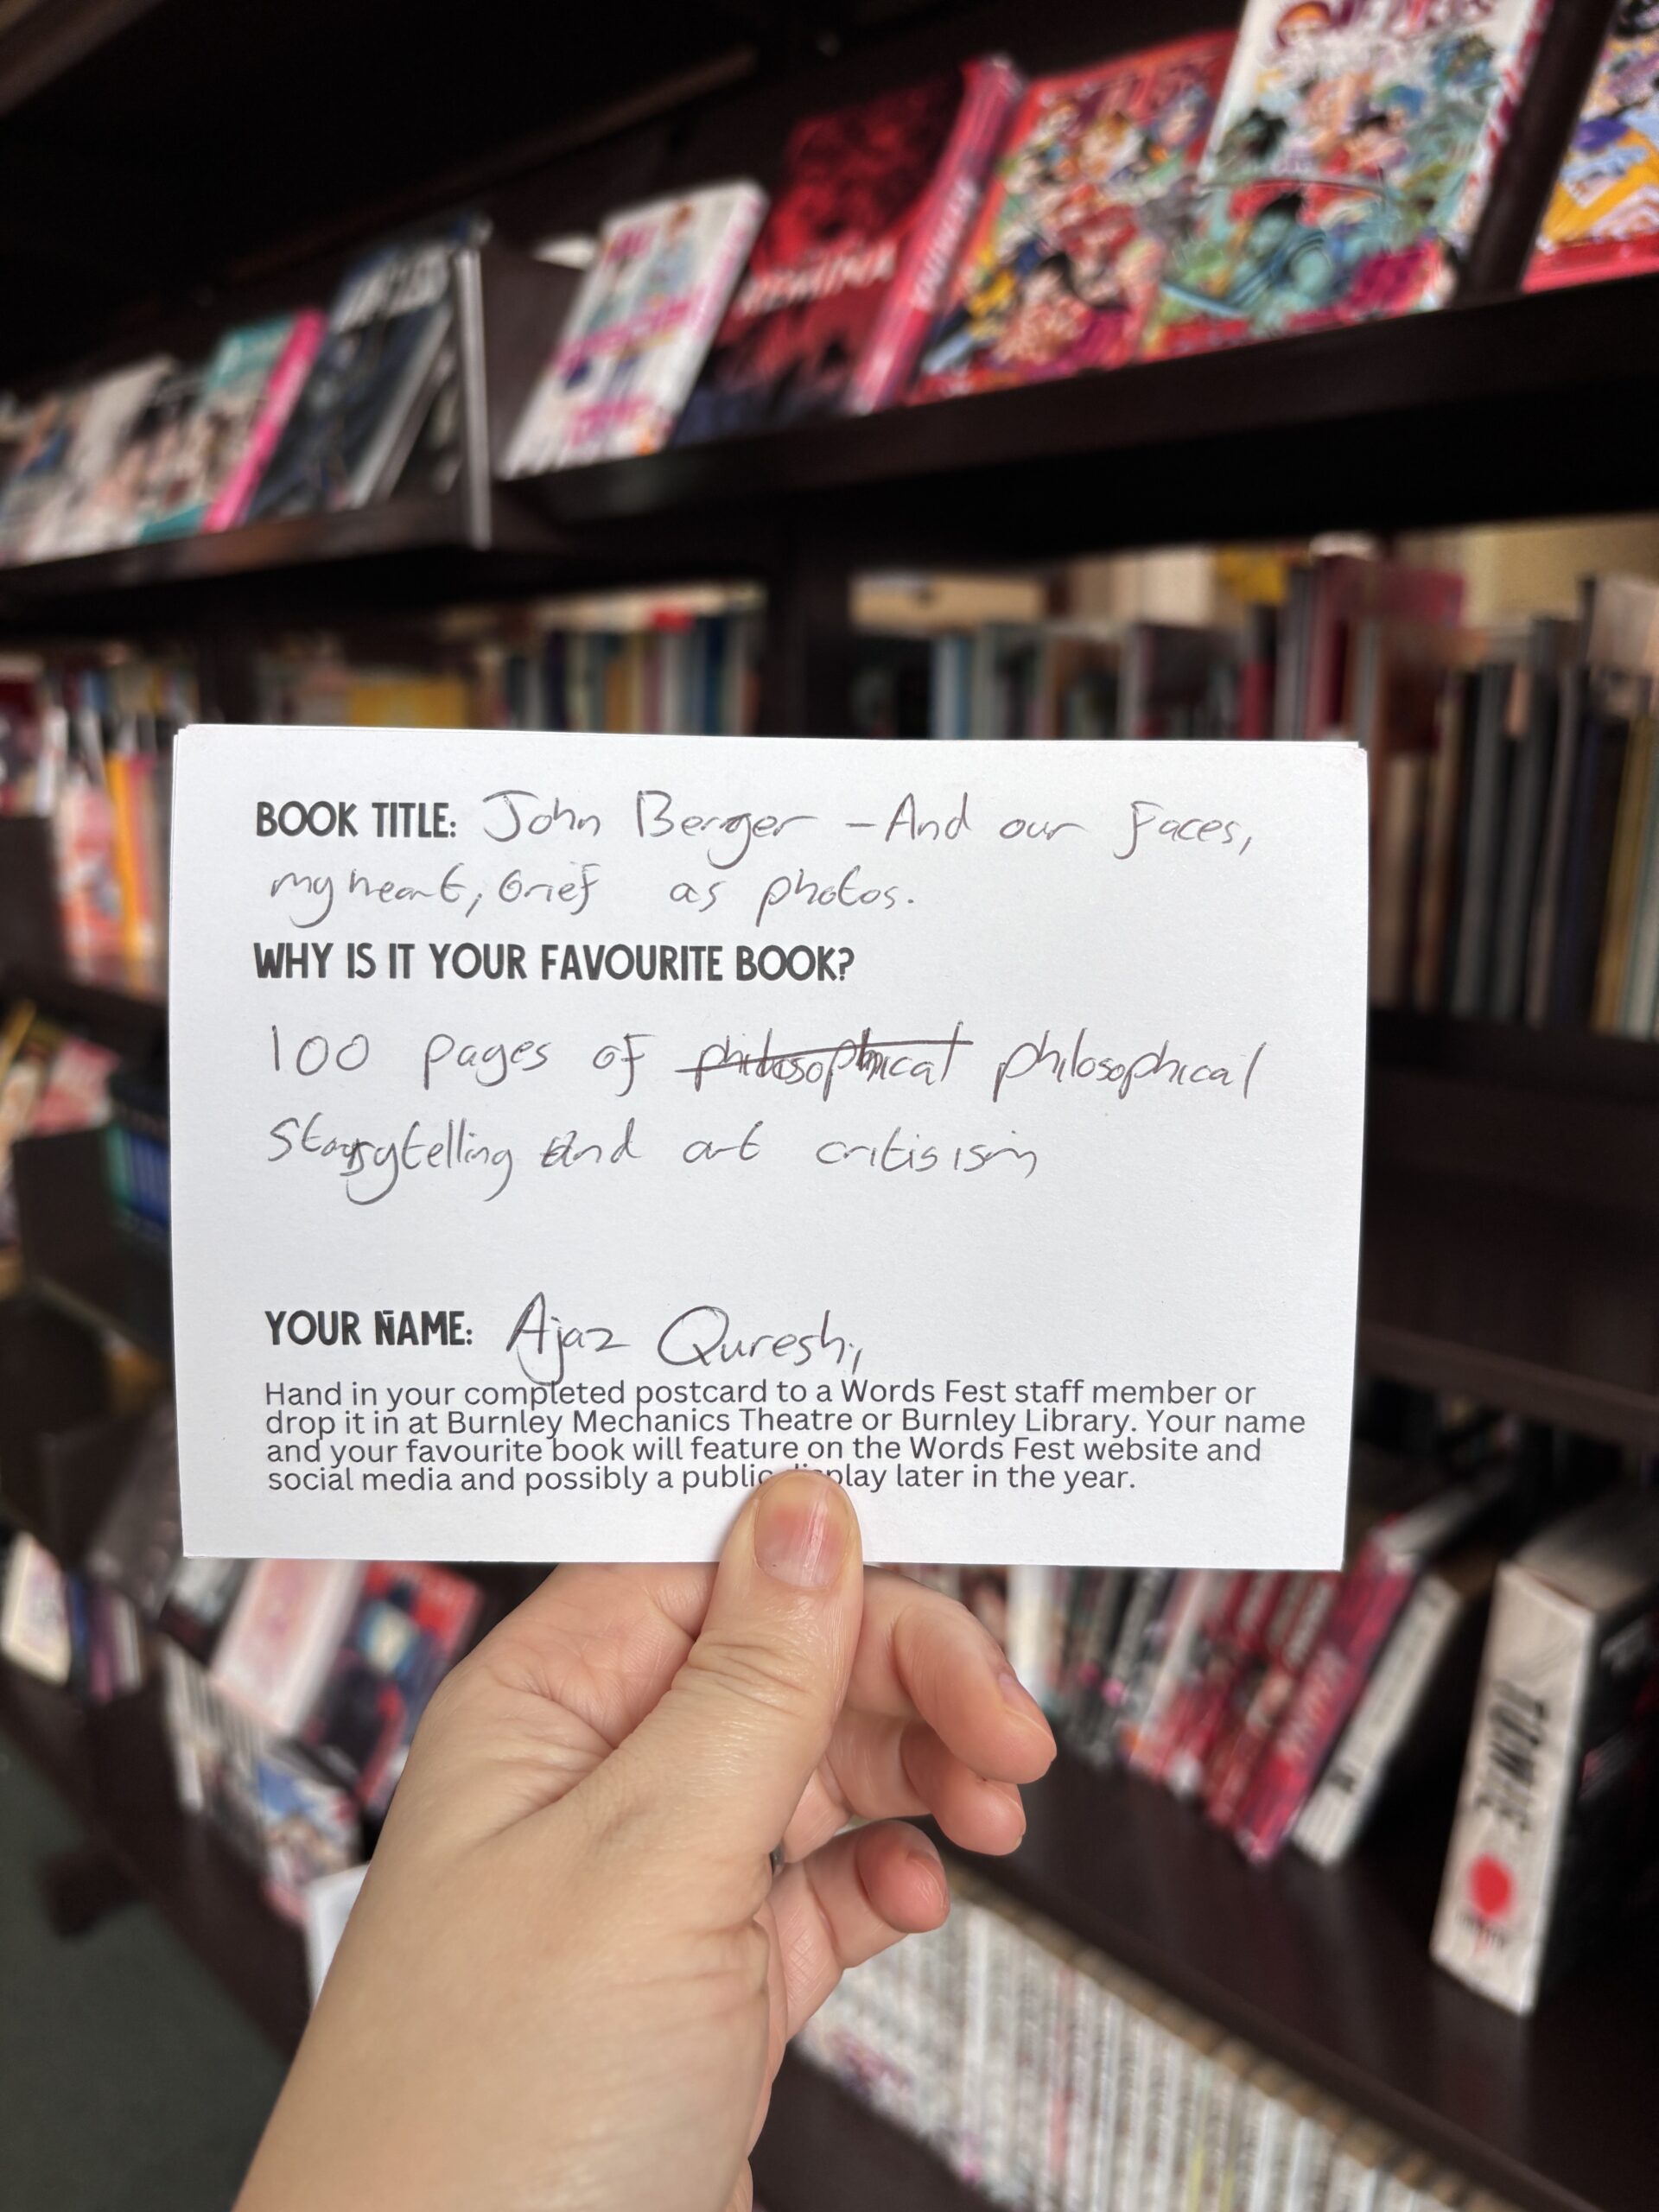 BOOK TITLE: John Berger - And our faces,
my heart, brief as photos.
WHY IS IT YOUR FAVOURITE BOOK?
100 pages of philosophical philosophical
Storytelling and art critisism
YOUR NAME: Ajaz Qureshi
Hand in your completed postcard to a Words Fest staff member or
drop it in at Burnley Mechanics Theatre or Burnley Library. Your name
and your favourite book will feature on the Words Fest website and
social media and possibly a public display later in the year.
TOMIE